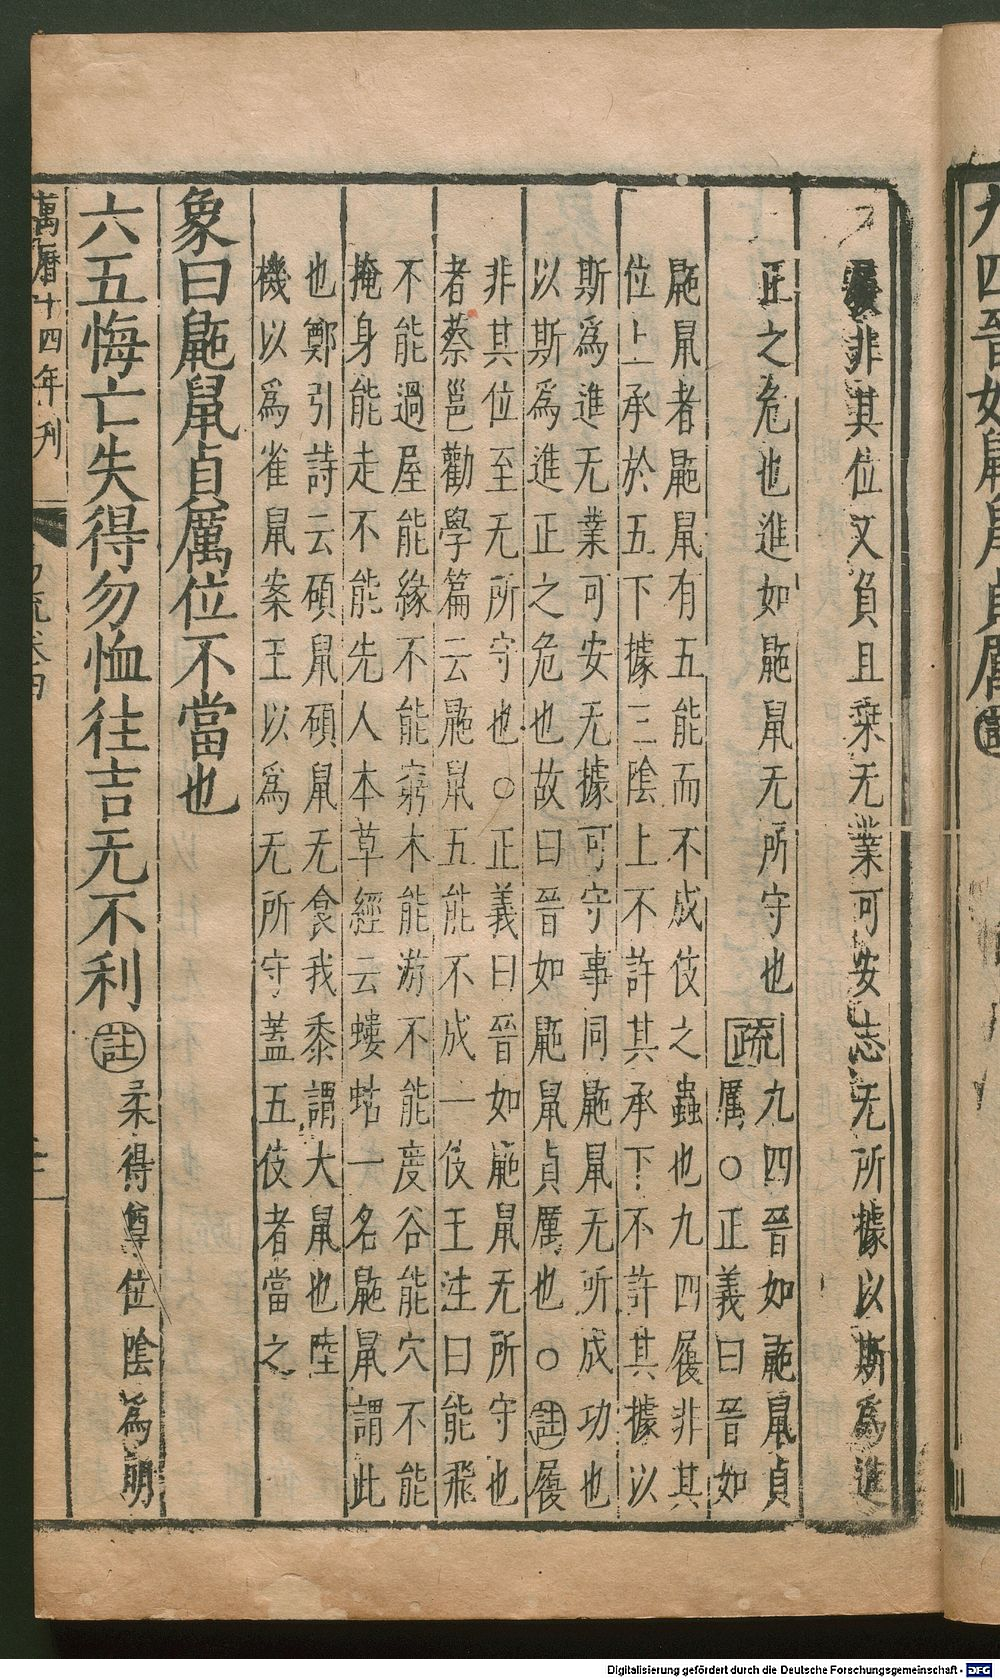 履非其位又負且乗无業可安志无所據以斯爲進
正之危也進如鼫鼠无所守也
疏
九四晉如鼫鼠貞
厲○正義曰晉如
鼫鼠者鼫鼠有五能而不成伎之蟲也九四履非其
位上承於五下據三陰上不許其承下不許其據以
斯爲進无業可安无據可守事同鼫鼠无所成功也
以斯爲進正之危也故曰晉如鼫鼠貞厲也○註履
非其位至无所守也○正義曰晉如鼫鼠无所守也
者蔡邕勸學篇云鼫鼠五能不成一伎王注曰能飛
不能過屋能緣不能窮木能游不能度谷能穴不能
掩身能走不能先人本草經云螻蛄一名鼫鼠謂此
也鄭引詩云碩鼠碩鼠无食我黍謂大鼠也陸
機以爲雀鼠案王以爲无所守蓋五伎者當之
象曰鼫鼠貞厲位不當也
六五悔亡失得勿恤往吉无不利註柔得尊位陰爲明
萬曆十四年刊
九四晉如鼫鼠貞厲註
Digitalisierung gefördert durch die Deutsche Forschungsgemeinschaft - DFG